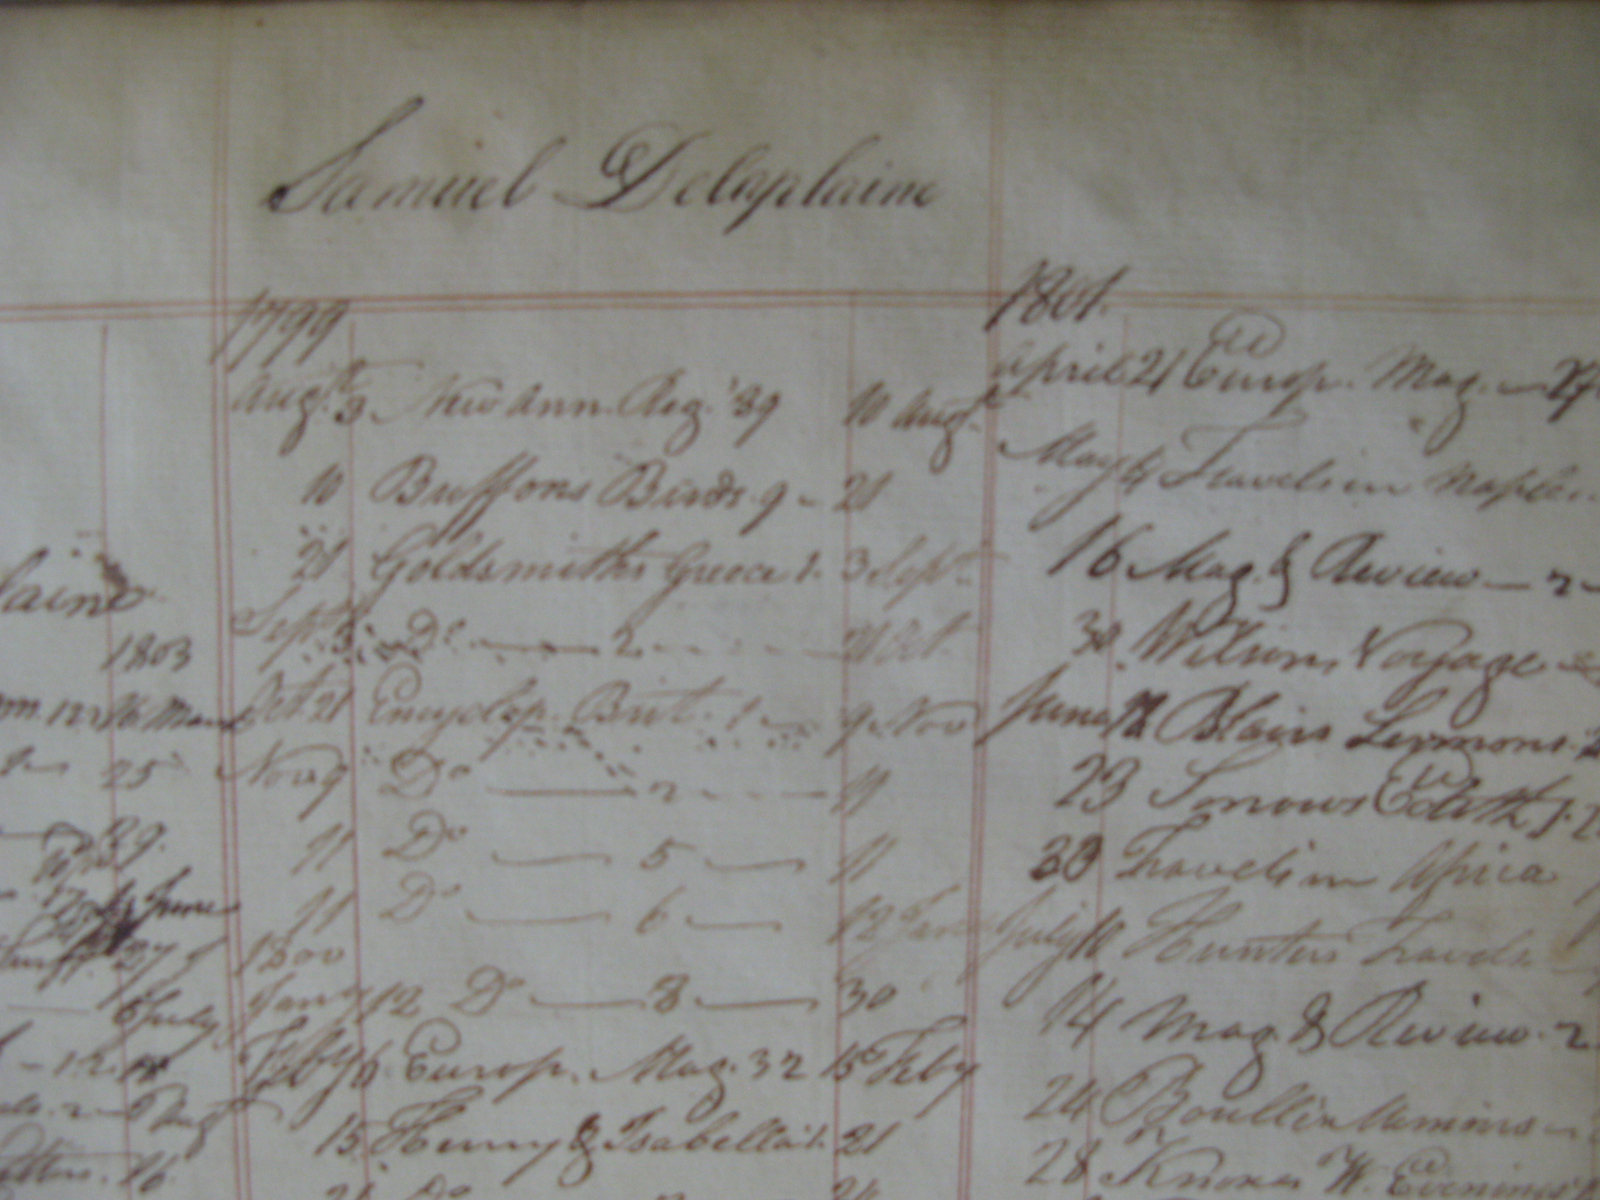 Samuel Delaplaine
laine
1803
16 March
25
29
June
27
6 July
- 12. 18
Aug
16
1799
Augt. 3 New Ann. Reg. '89 10 Augt.
10 Buffons Birds. 9 - 21
21 Goldsmiths Greece 1. 3 Sept.
Sept 3 Do — 2 — 21 Oct
Oct. 21 Encyclop. Brit. 1 — 9 Nov
Nov 9 Do — 2 — 11
11 Do — 5 — 11
11 Do — 6 — 12 Jany
1800
Jany 12 Do — 8 — 30
Feby 6 Europ. Mag. 32 15 Feby
15 Henry & Isabella 1. 21
21 Do
1801.
April 21 Europ. Mag. —
May 4 Travels in Naples
16 Mag. & Review — 2 -
30 Wilsons Voyage
June 12 Blairs Sermons. 2
23 Sorrows Edith 1.
30 Travels in Africa
July 10 Hunters Travels
14 Mag. & Review. 2
24 Memoirs
28 Knoxs W. Evenings